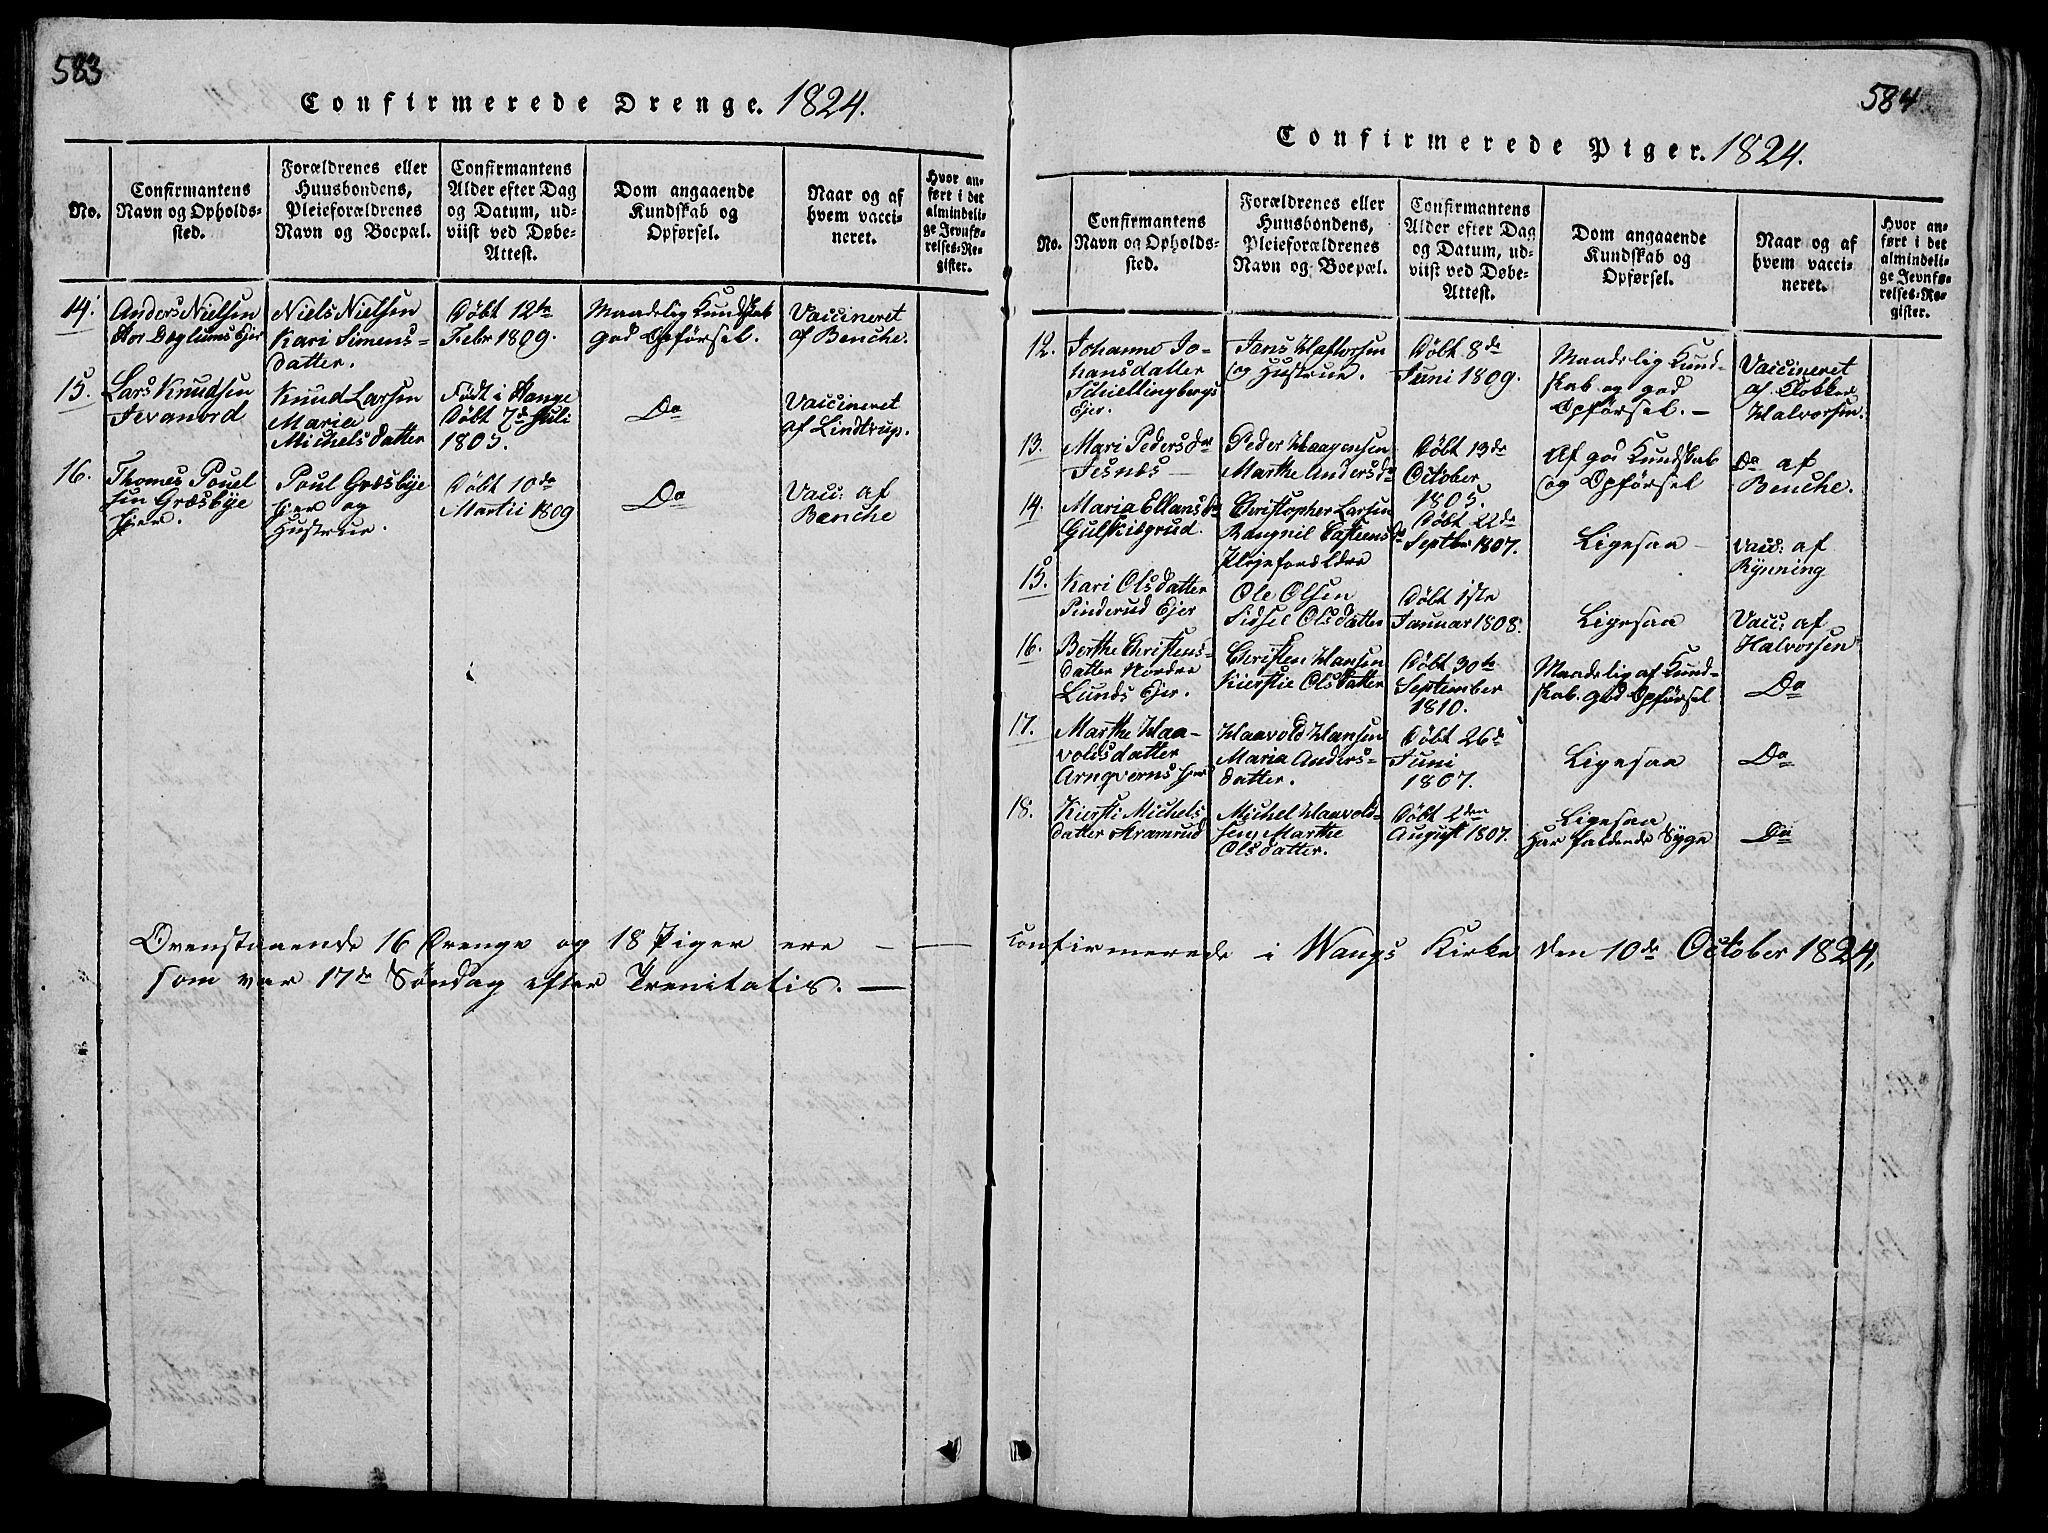 583
Confirmerede Drenge. 1824.
No.
Confirmantens
Navn og Opholds-
sted.
Forældrenes eller
Huusbondens,
Pleieforældrenes
Navn og Boepæl.
Confirmantens
Alder efter Dag
og Datum, ud-
viist ved Døbe-
Attest.
Dom angaaende
Kundskab og
Opførsel.
Naar og af
hvem vacci-
neret.
Hvor an-
ført i det
almindeli-
ge Jevnfø-
relses-Re-
gister.
14.
Anders Nielsen
Stor Deglums Ejer
Niels Nielsen
Kari Simens-
datter.
Døbt 12te
Febr 1809.
Maadelig Kundskab
god Opførsel.
Vaccineret
af Benche.
15.
Lars Knudsen
Jevanord
Knud Larsen
Maria
Michelsdatter
Født i Stange
Døbt 7de Juli
1805.
Do
Vaccineret
af Lindtrup.
16.
Thomes Pouel
sen Græsbye
Ejer.
Poul Græsbye
Ejer og
Hustrue.
Døbt 10de
Martii 1809
Do
Vacc: af
Benche
Ovenstaaende 16 Drenge og 18 Piger ere —
som var 17de Søndag efter Trenitatis. —
584
Confirmerede Piger. 1824.
No.
Confirmantens
Navn og Opholds-
sted.
Forældrenes eller
Huusbondens,
Pleieforældrenes
Navn og Boepæl.
Confirmantens
Alder efter Dag
og Datum, ud-
viist ved Døbe-
Attest.
Dom angaaende
Kundskab og
Opførsel.
Naar og af
hvem vacci-
neret.
Hvor an-
ført i det
almindeli-
ge Jevnfø-
relses-Re-
gister.
12.
Johanne Jo-
hansdatter
Schiellingbergs
Ejer.
Jens Halvorsen
og Hustrue.
Døbt 8de
Juni 1809.
Maadelig Kund-
skab og god
Opførsel. —
Vaccineret
af Klokker
Halvorsen.
13.
Mari Pedersdtr
Jesnæs —
Peder Haagensen
Marthe Andersdr
Døbt 13de
October
1805.
Af god Kundskab
og Opførsel
Do af
Benche.
14.
Maria Ellensdr
Gulskilgrud.
Christopher Larsen
Rangnil Eastensdr
Plejeforældre
Døbt 22de
Septbr 1807.
Ligesaa —
Vacc: af
Rynning
15.
Kari Olsdatter
Pinderud Ejer
Ole Olsen
Sidsel Olsdatter
Døbt 1ste
Januar 1808.
Ligesaa
Vacc: af
Halvorsen
16.
Berthe Christens-
datter Nordre
Lunds Ejer.
Christen Hansen
Kierstie Olsdatter
Døbt 30te
September
1810.
Maadelig af Kund-
skab. god Opførsel
Do
17.
Marthe Haa-
voldsdatter
Arnqverns Ejer
Haavold Hansen
Maria Anders-
datter.
Døbt 26de
Juni
1807.
Ligesaa
Do
18.
Kiersti Michels
datter Kramrud
Michel Haavold-
sen, Marthe
Olsdatter.
Døbt 2den
August 1807.
Ligesaa
Har faldende Syge
Do
confirmerede i Wangs Kirke den 10de October 1824,